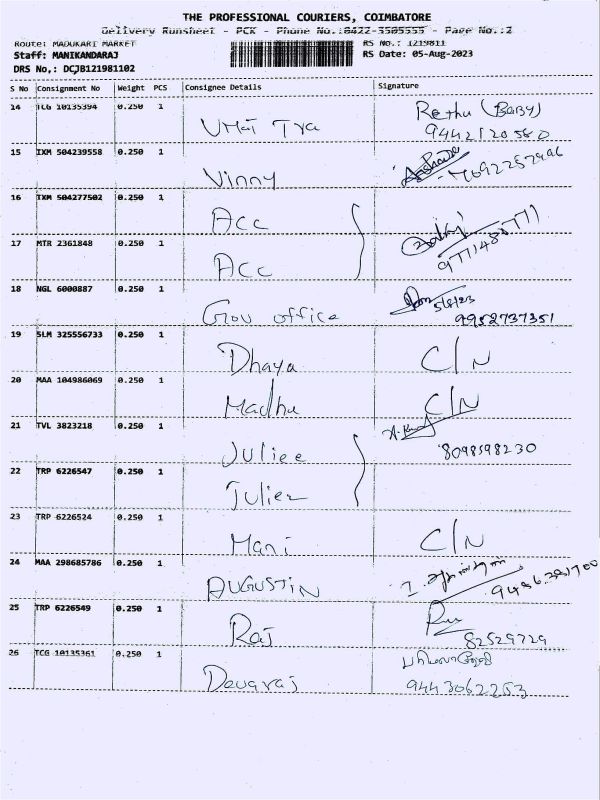 THE PROFESSIONAL COURIERS, COIMBATORE
Delivery Runsheet - PCK - Phone No.:0422-3505555 - Page No.:2
Route: MADUKARI MARKET RS No.: 1219811
Staff: MANIKANDARAJ RS Date: 05-Aug-2023
DRS No.: DCJB121981102
S No Consignment No Weight PCS Consignee Details Signature
14 TCG 10135394 0.250 1 Umai Tra Rethu (Baby)
9442120580
15 IXM 504239558 0.250 1 Vinny
16 TXM 504277502 0.250 1 Acc
17 MTR 2361848 0.250 1 Acc
18 NGL 6000887 0.250 1 Gov office 5/8/23
9952737351
19 SLM 325556733 0.250 1 Dhaya C/N
20 MAA 104986069 0.250 1 Madhu C/N
21 TVL 3823218 0.250 1 Juliee
8098598230
22 TRP 6226547 0.250 1 Juliee
23 TRP 6226524 0.250 1 Mani C/N
24 MAA 298685786 0.250 1 AUGUSTIN
25 TRP 6226549 0.250 1 Raj
82529729
26 TCG 10135361 0.250 1 Devaraj
9443062253